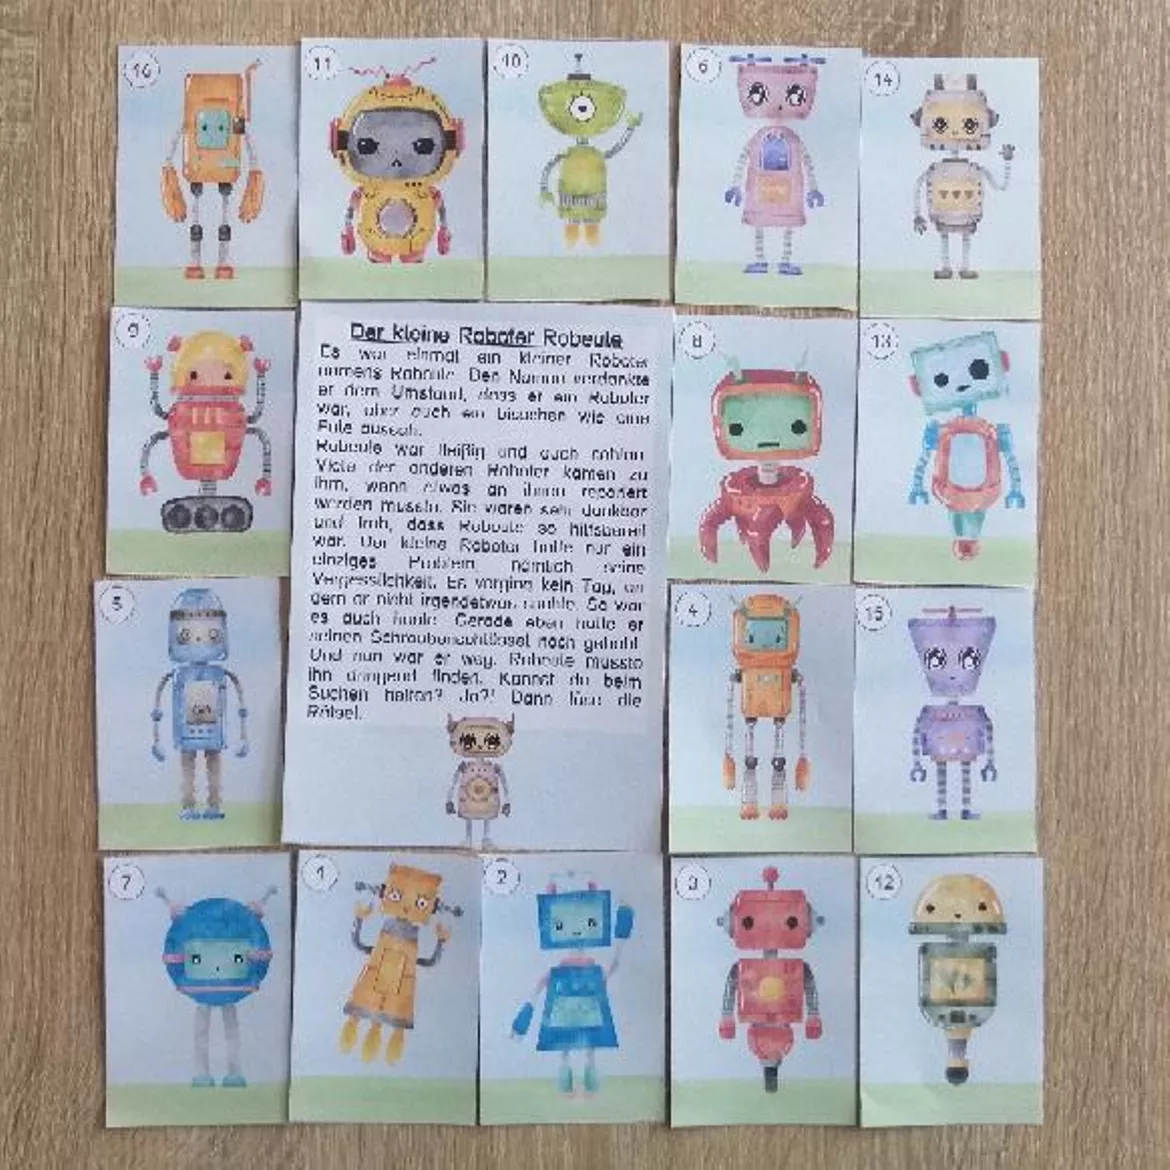 16
11
10
6
14
9
Der kleine Roboter Robeule
Es war einmal ein kleiner Roboter
namens Robeule. Den Namen verdankte
er dem Umstand, dass er ein Roboter
war, aber auch ein bisschen wie eine
Eule aussah.
Robeule war fleißig und auch schlau.
Viele der anderen Roboter kamen zu
ihm, wenn etwas an ihnen repariert
werden musste. Sie waren sehr dankbar
und froh, dass Robeule so hilfsbereit
war. Der kleine Roboter hatte nur ein
einziges Problem, nämlich seine
Vergesslichkeit. Es verging kein Tag, an
dem er nicht irgendetwas suchte. So war
es auch heute. Gerade eben hatte er
seinen Schraubenschlüssel noch gehabt.
Und nun war er weg. Robeule musste
ihn dringend finden. Kannst du beim
Suchen helfen? Ja?! Dann löse die
Rätsel.
8
13
5
4
15
7
1
2
3
12